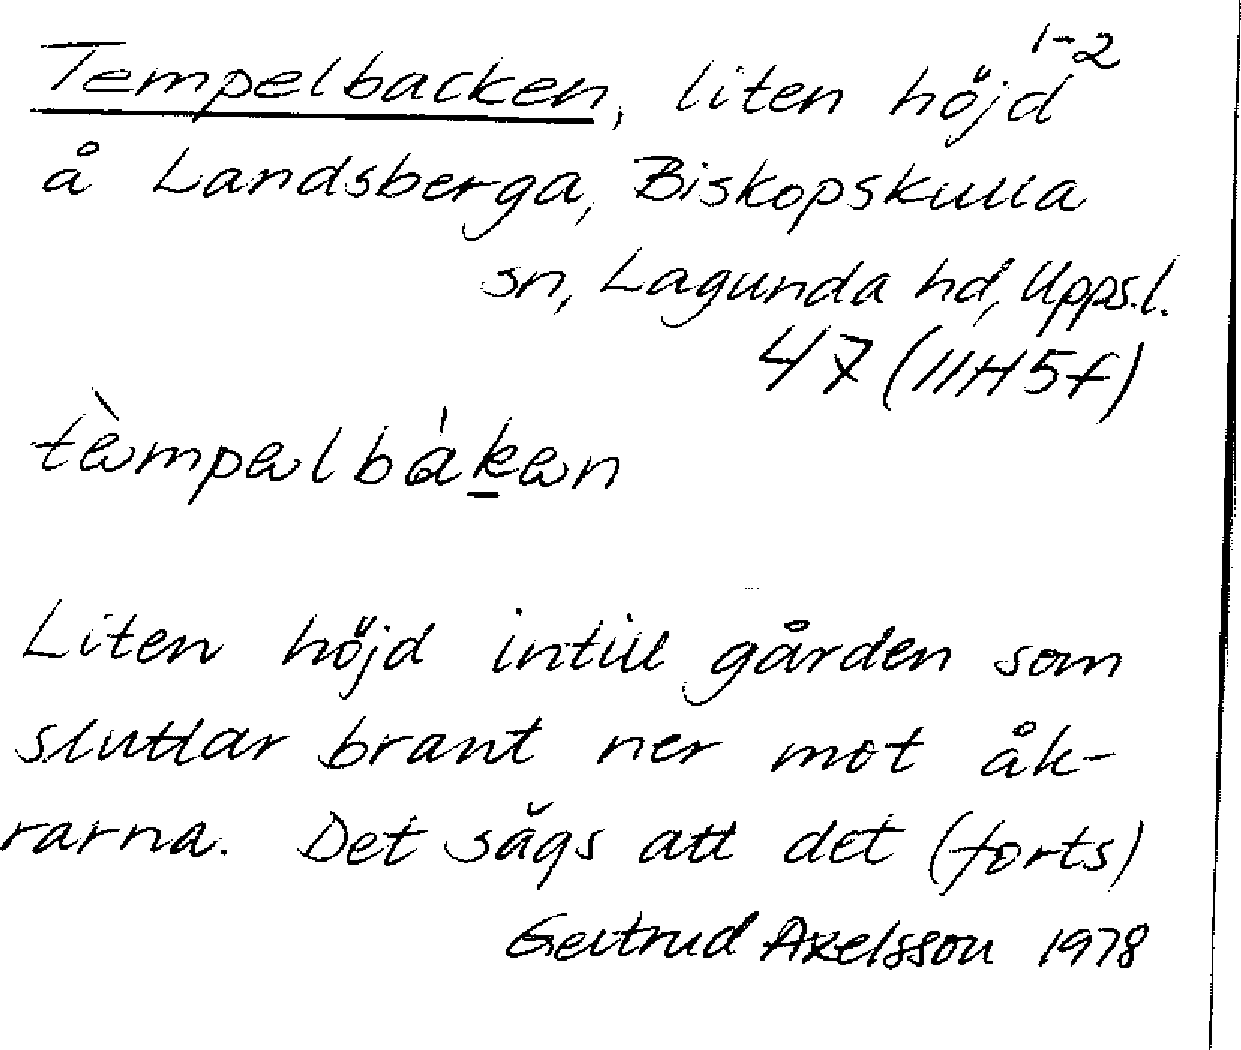 1-2
Tempelbacken, liten höjd
å Landsberga, Biskopskulla
sn, Lagunda hd, Upps.l.
47 (11H5f)
tèmpəlbàkən
Liten höjd intill gården som
sluttar brant ner mot åk-
rarna. Det sägs att det (forts)
Gertrud Axelsson 1978